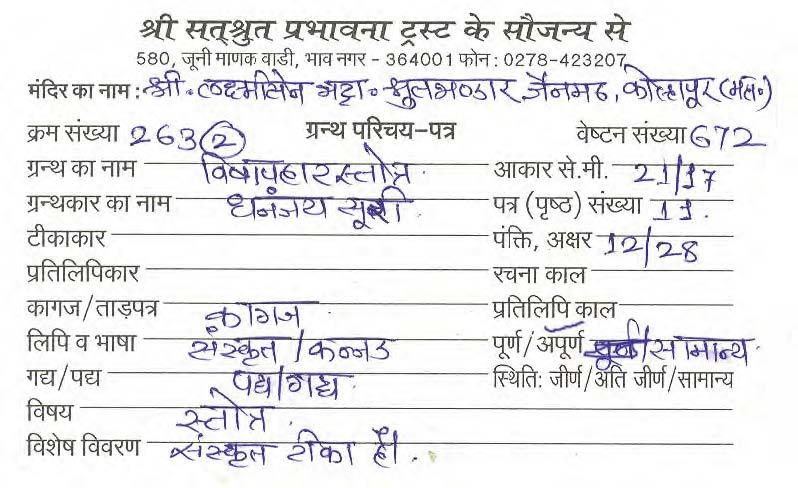 श्री सत्श्रुत प्रभावना ट्रस्ट के सौजन्य से
580, जूनी माणक वाडी, भाव नगर - 364001 फोन : 0278-423207
मंदिर का नाम : श्री. लक्ष्मीसेन भट्टा. श्रुतभण्डार जैनमठ, कोल्हापूर
क्रम संख्या 263 (2) ग्रन्थ परिचय-पत्र वेष्टन संख्या 672
ग्रन्थ का नाम विषापहारस्तोत्र. आकार से.मी. 21/17
ग्रन्थकार का नाम धनंजय सूरी. पत्र (पृष्ठ) संख्या 11.
टीकाकार पंक्ति, अक्षर 12/28
प्रतिलिपिकार रचना काल
कागज/ताड़पत्र कागज प्रतिलिपि काल
लिपि व भाषा संस्कृत/कन्नड पूर्ण/अपूर्ण /सामान्य.
गद्य/पद्य पद्य/गद्य स्थिति: जीर्ण/अति जीर्ण/सामान्य
विषय स्तोत्र.
विशेष विवरण संस्कृत टीका है।.